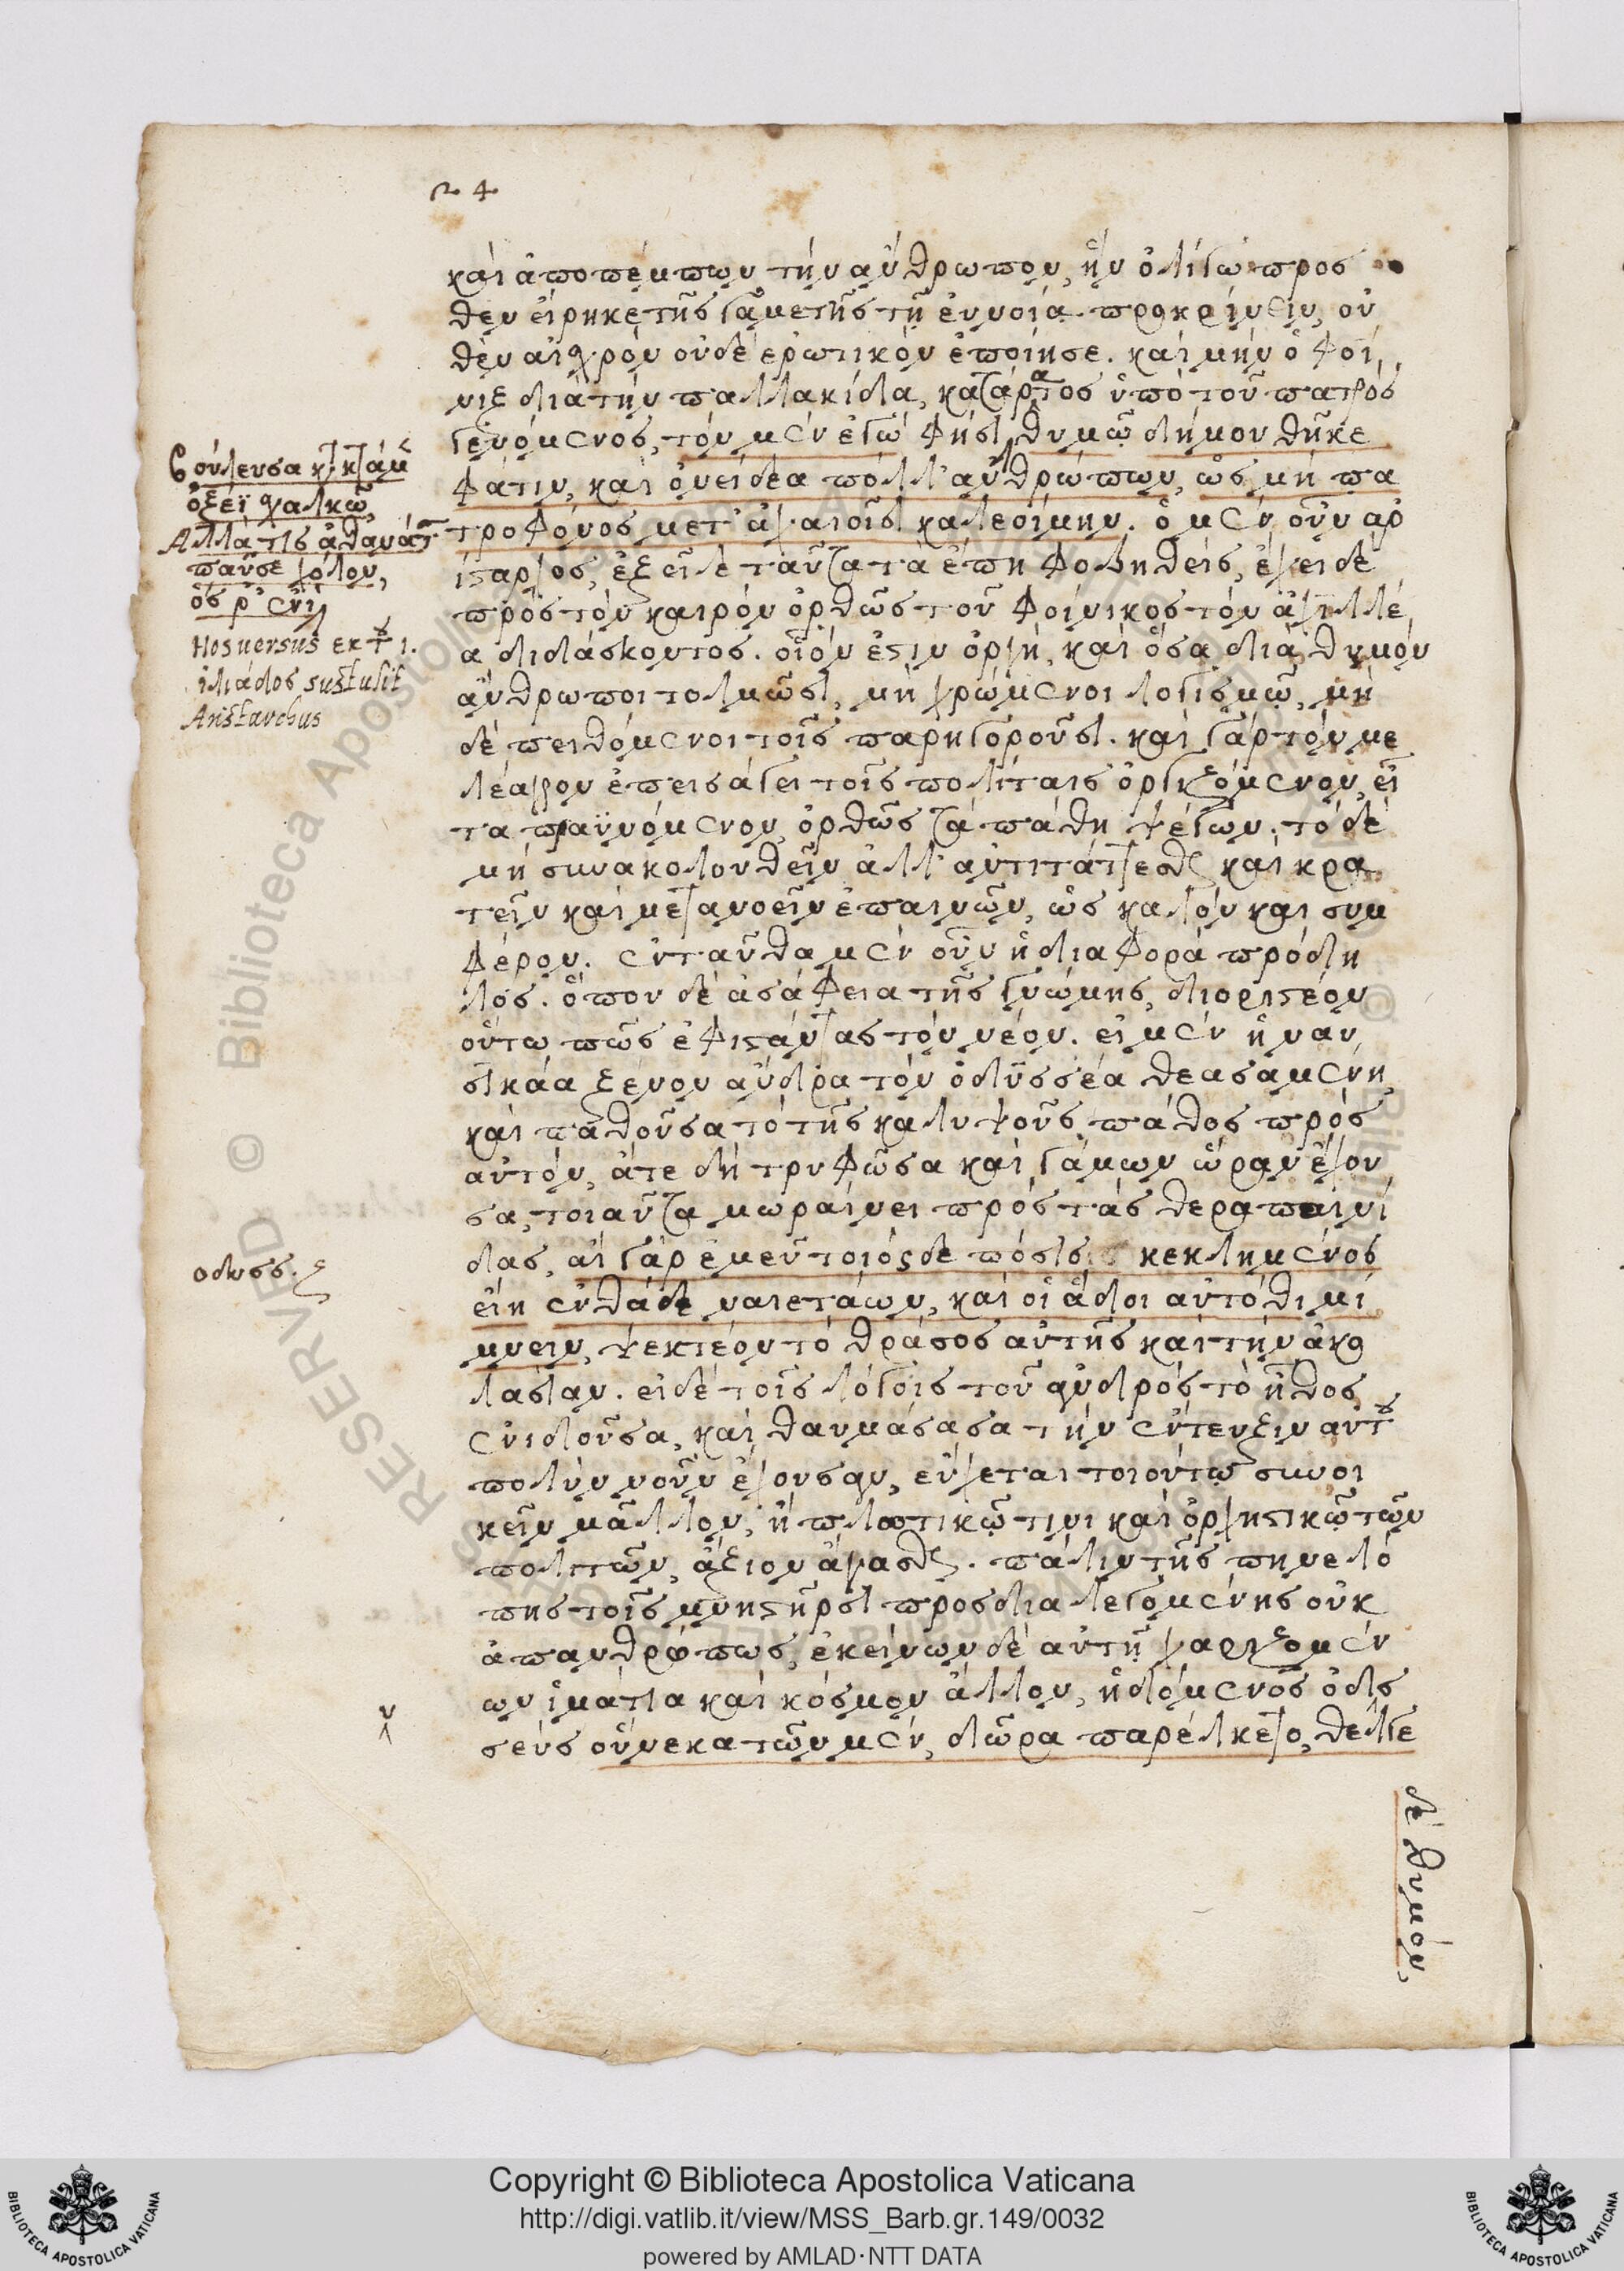 24
καὶ ἀποπέμπων τὴν ἄνθρωπον, ἣν ὀλίγω προσ
θεν εἴρηκε τῆς γαμετῆς τῇ εὐνοίᾳ προκρίνειν, οὐ
θὲν αἰσχρὸν οὐδὲ ἐρωτικὸν ἐποίησε. καὶ μὴν ὁ φοί
νιξ διὰ τὴν παλλακίδα, κατάρατος ὑπὸ τοῦ πατρὸς
γενόμενος, τὸν μὲν ἐγὼ φησὶ, θυμῷ δήμου θῆκε
φάτιν, καὶ ὀνείδεα πόλλ' ἀνθρώπων, ὡς μὴ πα
τροφόνος μετ' ἀχαιοῖσι καλεοίμην. ὁ μὲν οὖν ἀρ
ίσταρχος, ἐξεῖλε ταῦτα τὰ ἔπη φοβηθείς, ἔχει δὲ
πρὸς τὸν καιρὸν ὀρθῶς τοῦ φοίνικος τὸν ἀχιλλέ
α διδάσκοντος. οἷόν ἐστιν ὀργὴ, καὶ ὅσα διὰ θυμὸν
ἄνθρωποι τολμῶσι, μὴ χρώμενοι λογισμῷ, μη
δὲ πειθόμενοι τοῖς παρηγοροῦσι. καὶ γὰρ τὸν με
λέαγρον ἐπεισάγει τοῖς πολίταις ὀργιζόμενον, εἶ
τα πραϋνόμενον, ὀρθῶς τὰ πάθη ψέγων. τὸ δὲ
μὴ συνακολουθεῖν ἀλλ' ἀντιτάττεσθαι καὶ κρα
τεῖν καὶ μετανοεῖν ἐπαινῶν, ὡς καλὸν καὶ συμ
φέρον. ἐνταῦθα μὲν οὖν ἡ διαφορὰ πρόδη
λος. ὅπου δὲ ἀσάφεια τῆς γνώμης, διοριστέον
οὕτω πῶς ἐφιστάντας τὸν νέον. εἰ μὲν ἡ ναυ
σικάα ξένον ἄνδρα τὸν ὀδυσσέα θεασαμένη
καὶ παθοῦσα τὸ τῆς καλυψοῦς πάθος πρὸς
αὐτὸν, ἅτε δὴ τρυφῶσα καὶ γάμων ὥραν ἔχου
σα, τοιαῦτα μωραίνει πρὸς τὰς θεραπαινί
δας, αἲ γὰρ ἐμεῦ τοιόςδε πόσις κεκλημένος
εἴη ἐνθάδε ναιετάων, καὶ οἱ ἅδοι αὐτόθι μί
μνειν, ψεκτέον τὸ θράσος αὐτῆς καὶ τὴν ἀκο
λασίαν. εἰ δὲ τοῖς λόγοις τοῦ ἀνδρὸς τὸ ἦθος
ἐνιδοῦσα, καὶ θαυμάσασα τὴν ἔντευξιν αὐτοῦ
πολὺν νοῦν ἔχουσαν, εὔχεται τοιούτῳ συνοι
κεῖν μᾶλλον, ἢ πλωτικῷ τινι καὶ ὀρχηστικῷ τῶν
πολιτῶν, ἄξιον ἄγασθαι. πάλιν τῆς πηνελό
πης τοῖς μνηστῆρσι προσδιαλεγομένης οὐκ
ἀπανθρώπως, ἐκείνων δὲ αὐτῇ χαριζομέν
ων ἱμάτια καὶ κόσμον ἄλλον, ἡδόμενος ὀδυσ
σεὺς οὕνεκα τῶν μὲν, δῶρα παρέλκετο, θέλγε
δὲ θυμὸν,
βούλευσα κατακτάμεν
ὀξέϊ χαλκῷ,
Αλλά τις ἀθανάτων
παῦσε χόλον,
ὅς ρ' ἐνὶ
Hos versus ex τοῦ ι.
ἰλιάδος sustulit
Aristarchus
οδυσσ. ζ